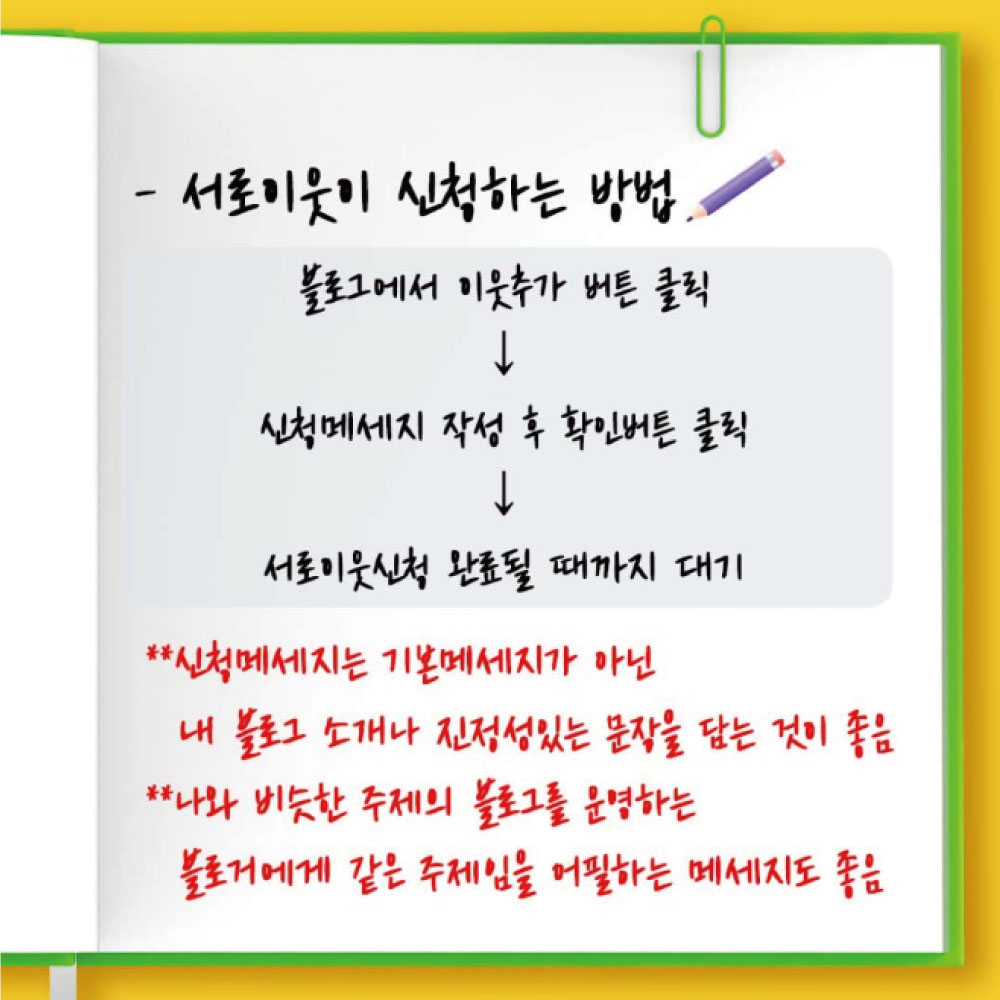 - 서로이웃이 신청하는 방법
블로그에서 이웃추가 버튼 클릭
↓
신청메세지 작성 후 확인버튼 클릭
↓
서로이웃신청 완료될 때까지 대기
**신청메세지는 기본메세지가 아닌
내 블로그 소개나 진정성있는 문장을 담는 것이 좋음
**나와 비슷한 주제의 블로그를 운영하는
블로거에게 같은 주제임을 어필하는 메세지도 좋음